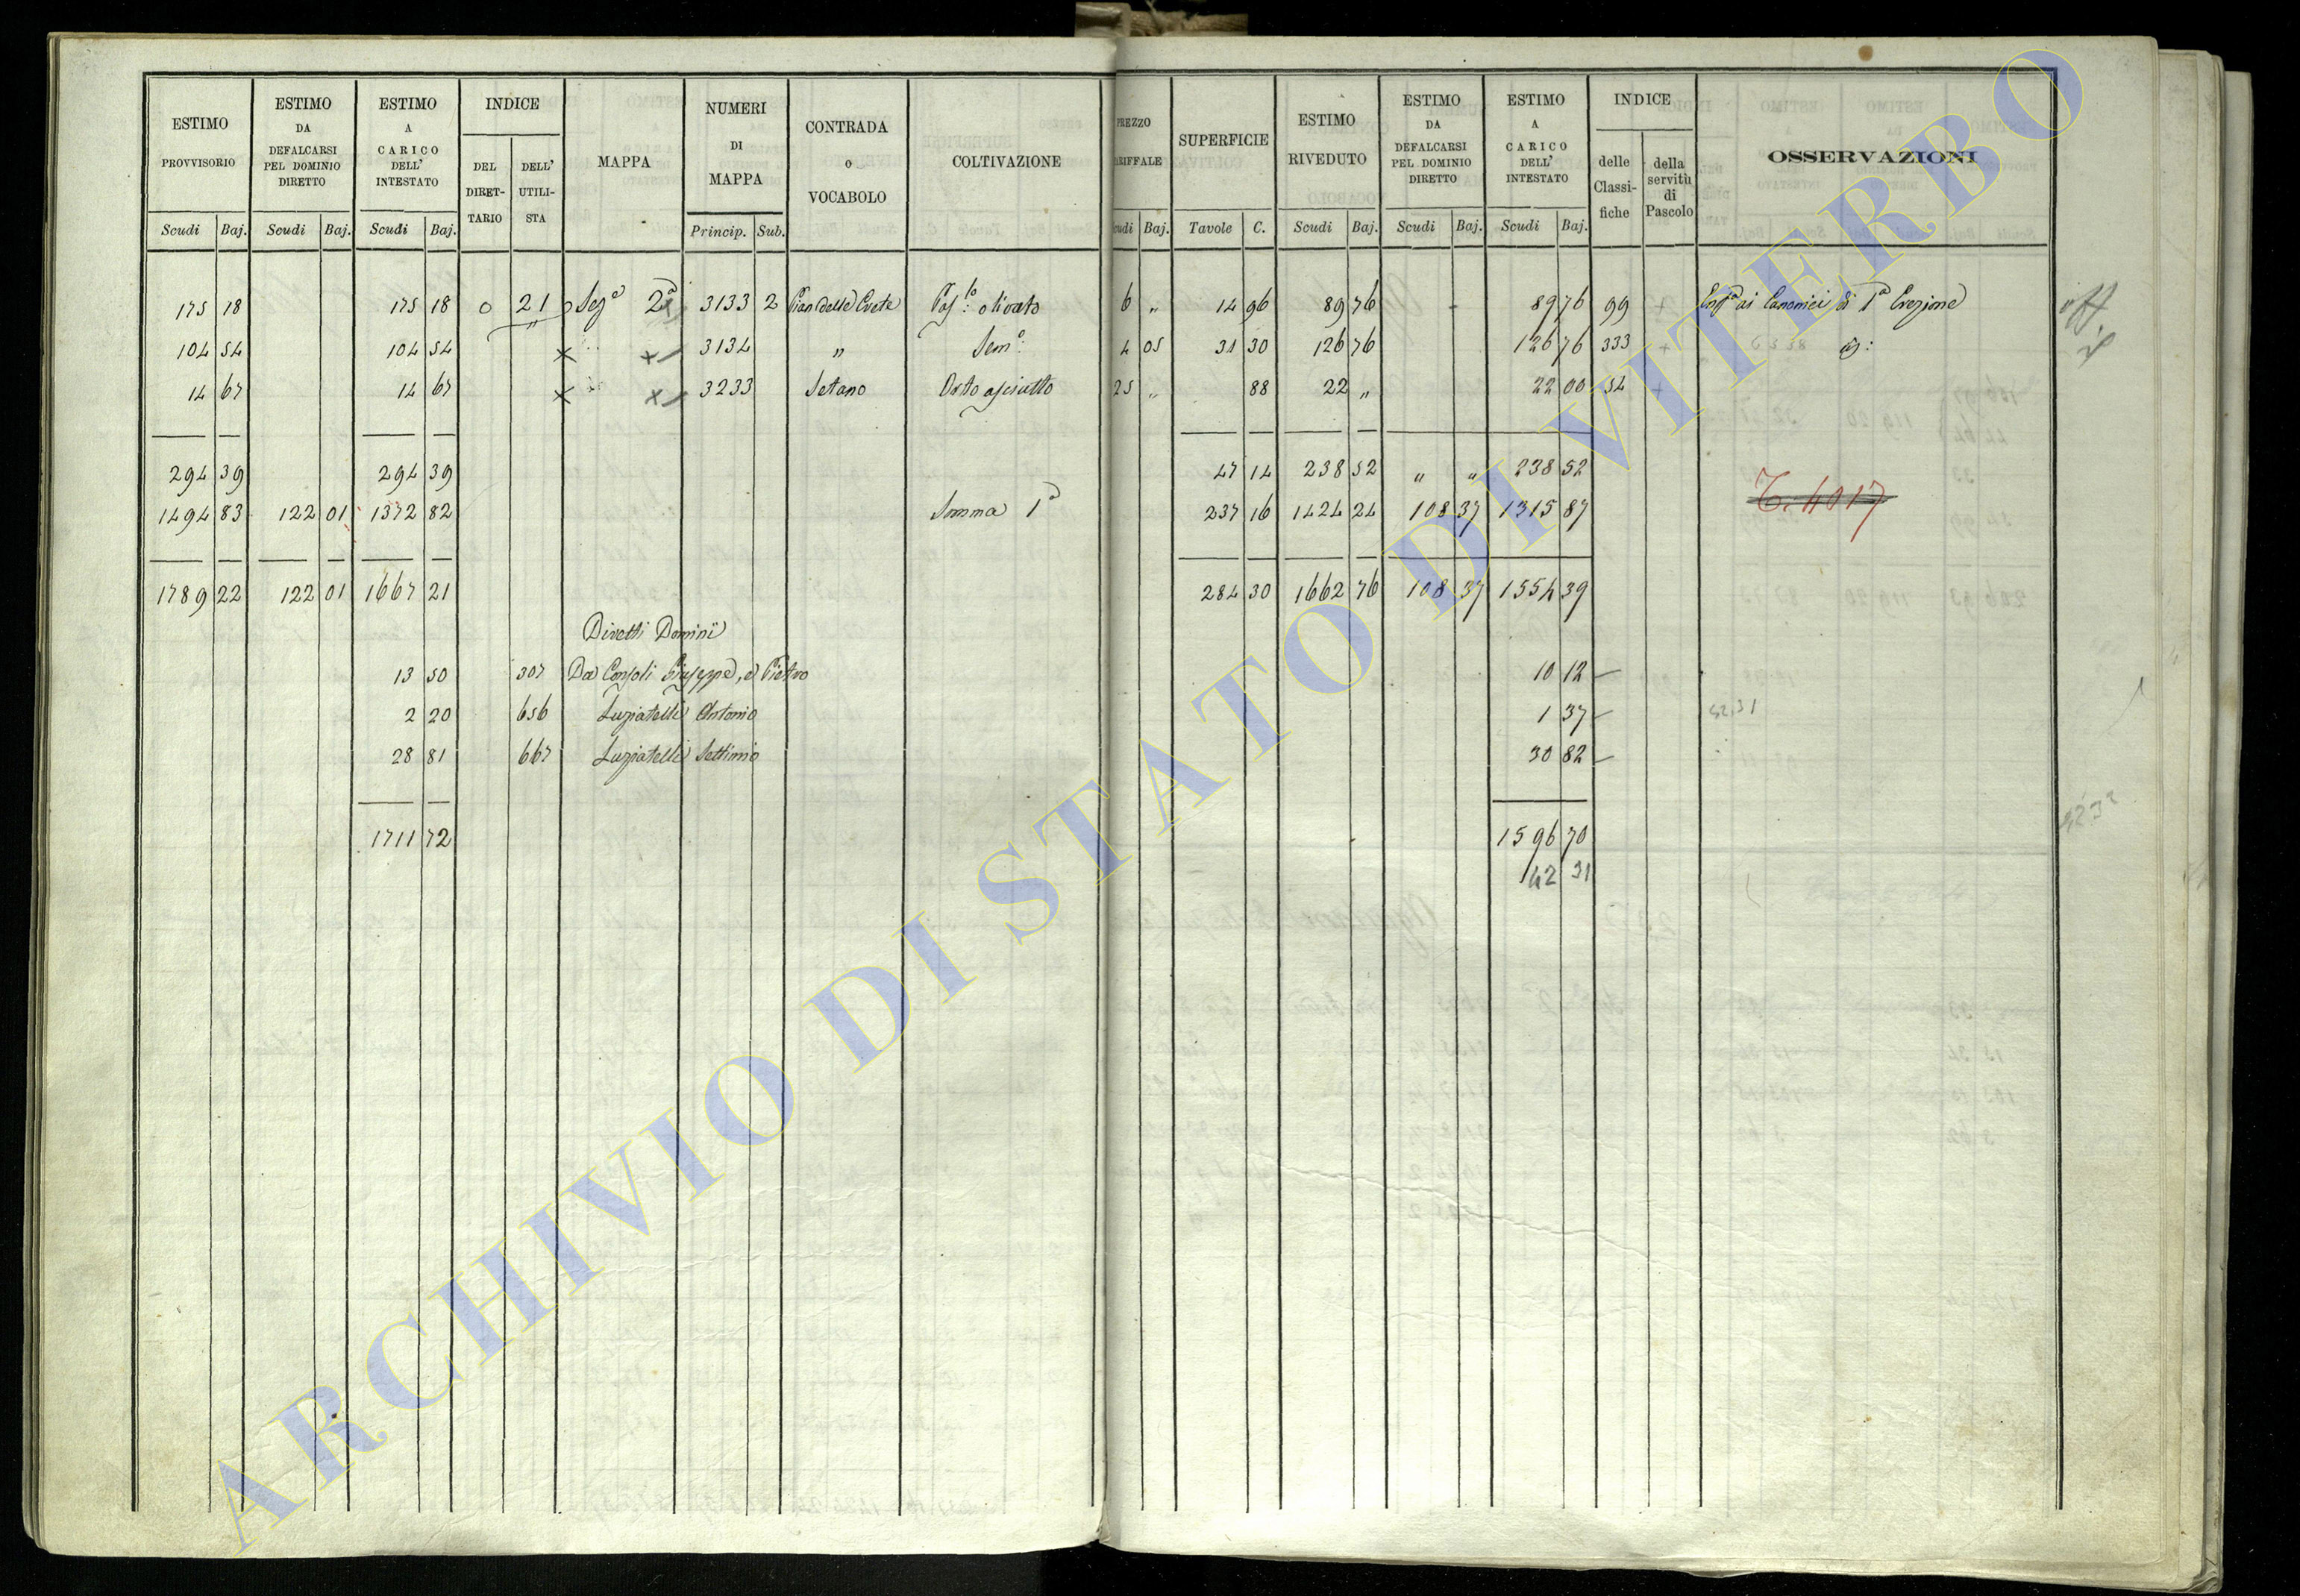 ESTIMO PROVVISORIO
ESTIMO DA DEFALCARSI PEL DOMINIO DIRETTO
ESTIMO A CARICO DELL' INTESTATO
INDICE
DEL DIRET-TARIO
DELL' UTILI-STA
MAPPA
NUMERI DI MAPPA
CONTRADA o VOCABOLO
COLTIVAZIONE
PREZZO
SUPERFICIE
ESTIMO RIVEDUTO
ESTIMO DA DEFALCARSI PEL DOMINIO DIRETTO
ESTIMO A CARICO DELL' INTESTATO
INDICE
delle Classi-fiche
della servitù di Pascolo
OSSERVAZIONI
Scudi Baj. Scudi Baj. Scudi Baj. Princip. Sub. Baj. Tavole C. Scudi Baj. Scudi Baj. Scudi Baj.
175 18 175 18 0 21 Seg.e 2a 3133 2 Pian delle Crete Pas.to olivato 6 „ 14 96 89 76 - 89 76 99 + ai Canonici di 1a Erezione
104 54 104 54 × 3134 „ Sem.o 4 05 31 30 126 76 126 76 333 +
14 67 14 67 × 3233 Setano Orto asciutto 25 „ 88 22 „ 22 00 54 +
294 39 294 39 47 14 238 52 „ „ 238 52
1494 83 122 01 1372 82 Somma 1a 237 16 1424 24 108 37 1315 87
T. 4017
1789 22 122 01 1667 21 284 30 1662 76 108 37 1554 39
Diretti Dominii
13 50 307 Da Consoli Giuseppe, e Pietro 10 12
2 20 656 Luziatelli Antonio 1 37
28 81 667 Luziatelli Settimio 30 82
1711 72 1596 70
42 31
ARCHIVIO DI STATO DI VITERBO